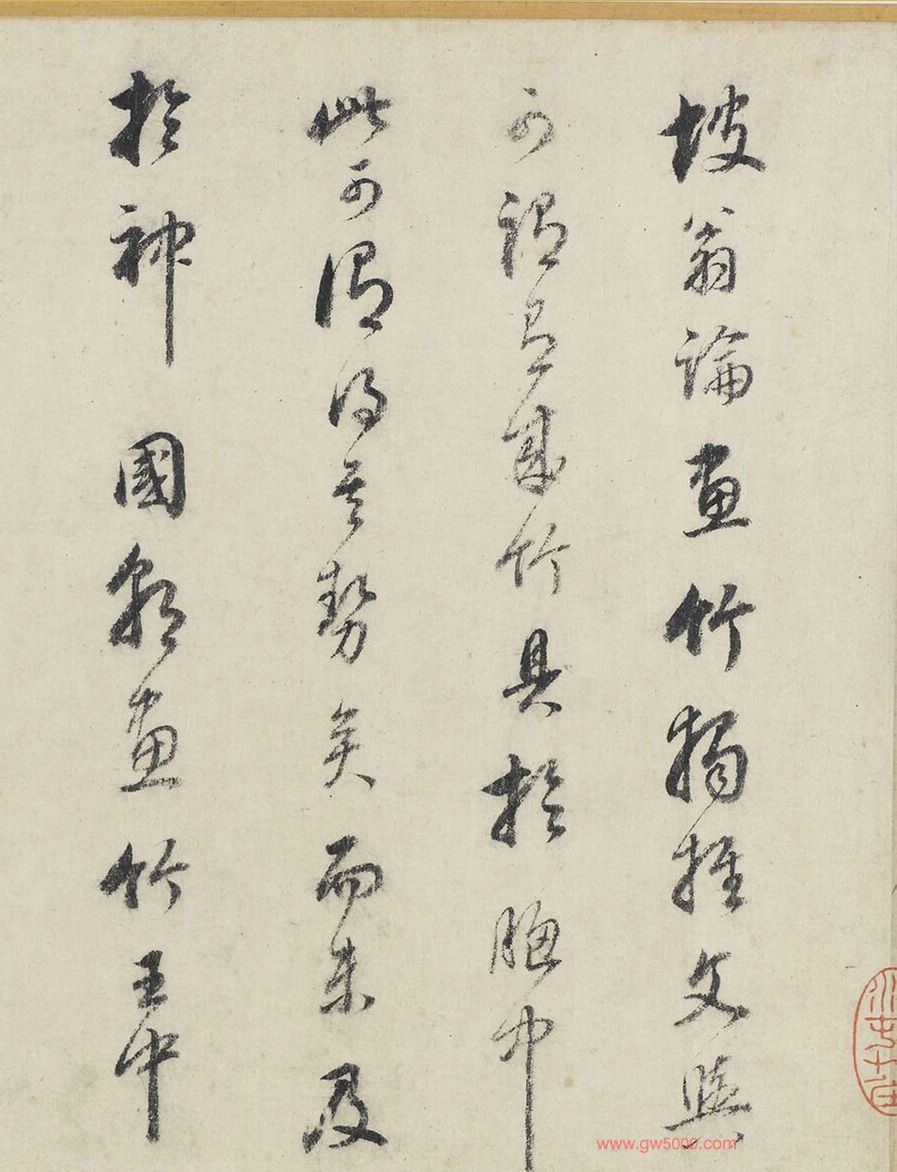 坡翁論画竹獨推文與
可謂是成竹具於胸中
此可謂得其勢矣而未及
於神 國朝画竹王中
www.gw5000.com